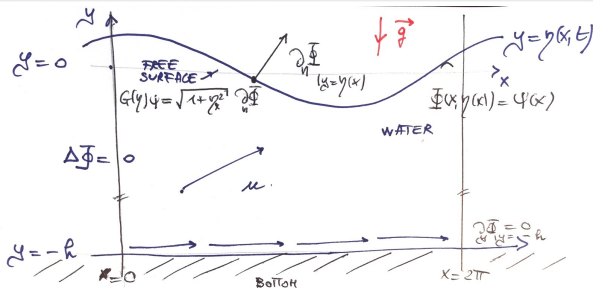 y
g
y = η(x,t)
y = 0
FREE
SURFACE
∂ₙΦ|y=η(x)
x
G(η)ψ = √1+ηₓ² ∂ₙΦ
Φ(x,η(x)) = ψ(x)
WATER
ΔΦ = 0
u
∂yΦ = 0
y = -h
y = -h
x = 0
BOTTOM
x = 2π